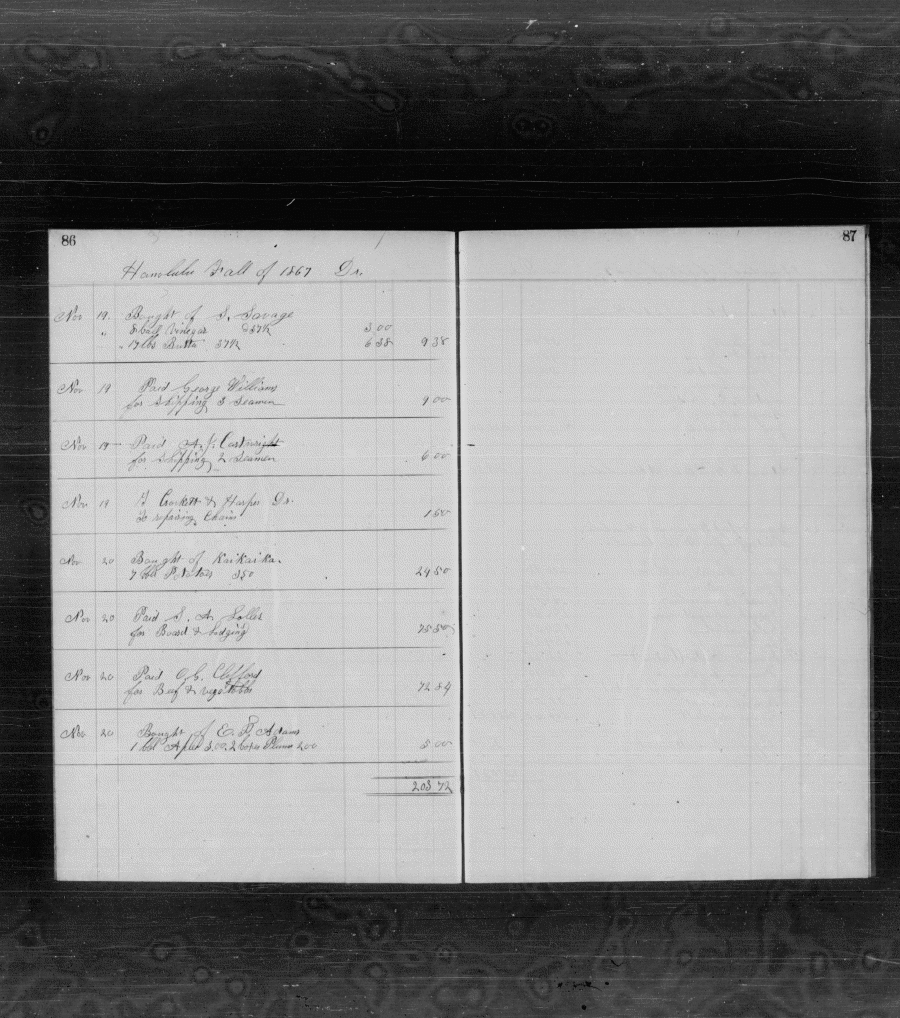 86
87
Honolulu Fall of 1867 Dr.
Nov 19. Bought of S. Savage
" 8 Vinegar 37½ 3 00
" 17 lbs Butter 37½ 6 38 9 38
Nov 19 Paid George Williams
for Shipping 3 Seamen 9 00
Nov 19 Paid A. J. Cartwright
for Shipping 2 Seamen 6 00
Nov 19 Crockett & Harper Dr.
To repairing Chain 1 50
Nov 20 Bought of Kaikaika.
7 bbl Potatoes 350 24 50
Nov 20 Paid S. A.
for Board & Lodging 75 50
Nov 20 Paid O. C. Clifford
for Beef & vegetables 72 84
Nov 20 Bought of E. P. Adams
1 bbl Apples 3.00. 2 boxes Plums 2.00 5 00
203 72